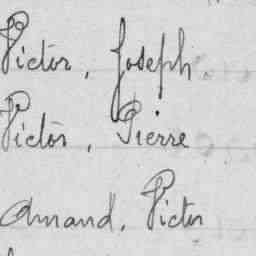 Victor, Joseph
Victor, Pierre
Amand, Victor